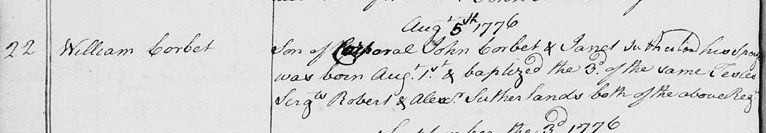 Augt 5th 1776
22 William Corbet Son of Corporal John Corbet & Janet Sutherland his Spouse
was born Augt 1st & baptized the 3d of the same Testes
Sergts Robert & Alexr Sutherlands both of the above Regt
September the 3d 1776